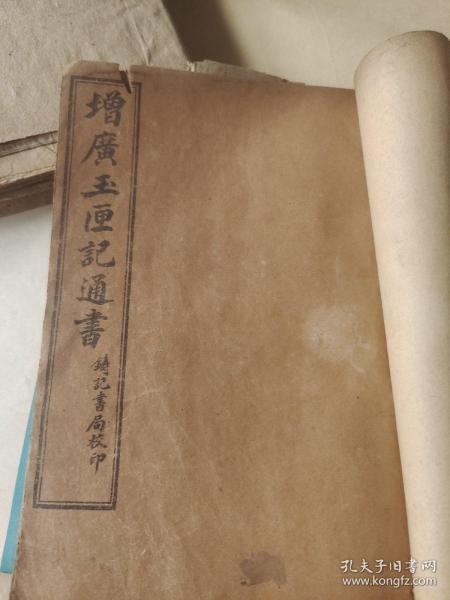 增廣玉匣記通書
鑄記書局校印
孔夫子旧书网
www.kongfz.com